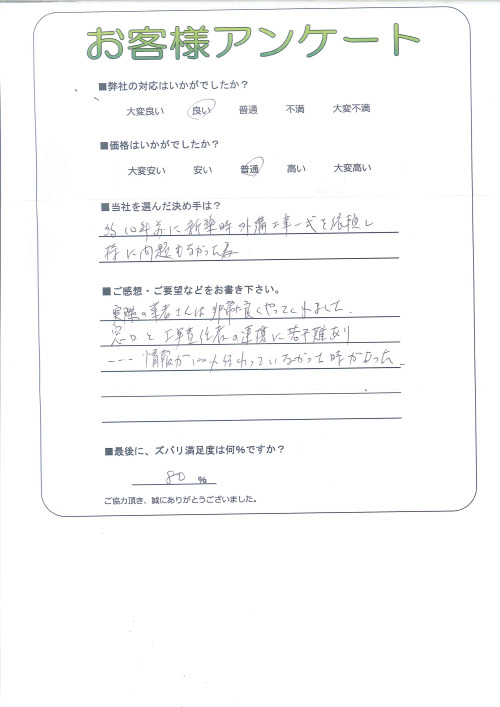 お客様アンケート
■弊社の対応はいかがでしたか？
大変良い 良い 普通 不満 大変不満
■価格はいかがでしたか？
大変安い 安い 普通 高い 大変高い
■当社を選んだ決め手は？
約10年前に新築時外構工事一式を依頼し
特に問題もなかった為
■ご感想・ご要望などをお書き下さい。
実際の業者さんは非常に良くやってくれました。
窓口と工事責任者の連携に若干難あり
…情報が100%伝わっていなかった時があった。
■最後に、ズバリ満足度は何%ですか？
80 %
ご協力頂き、誠にありがとうございました。